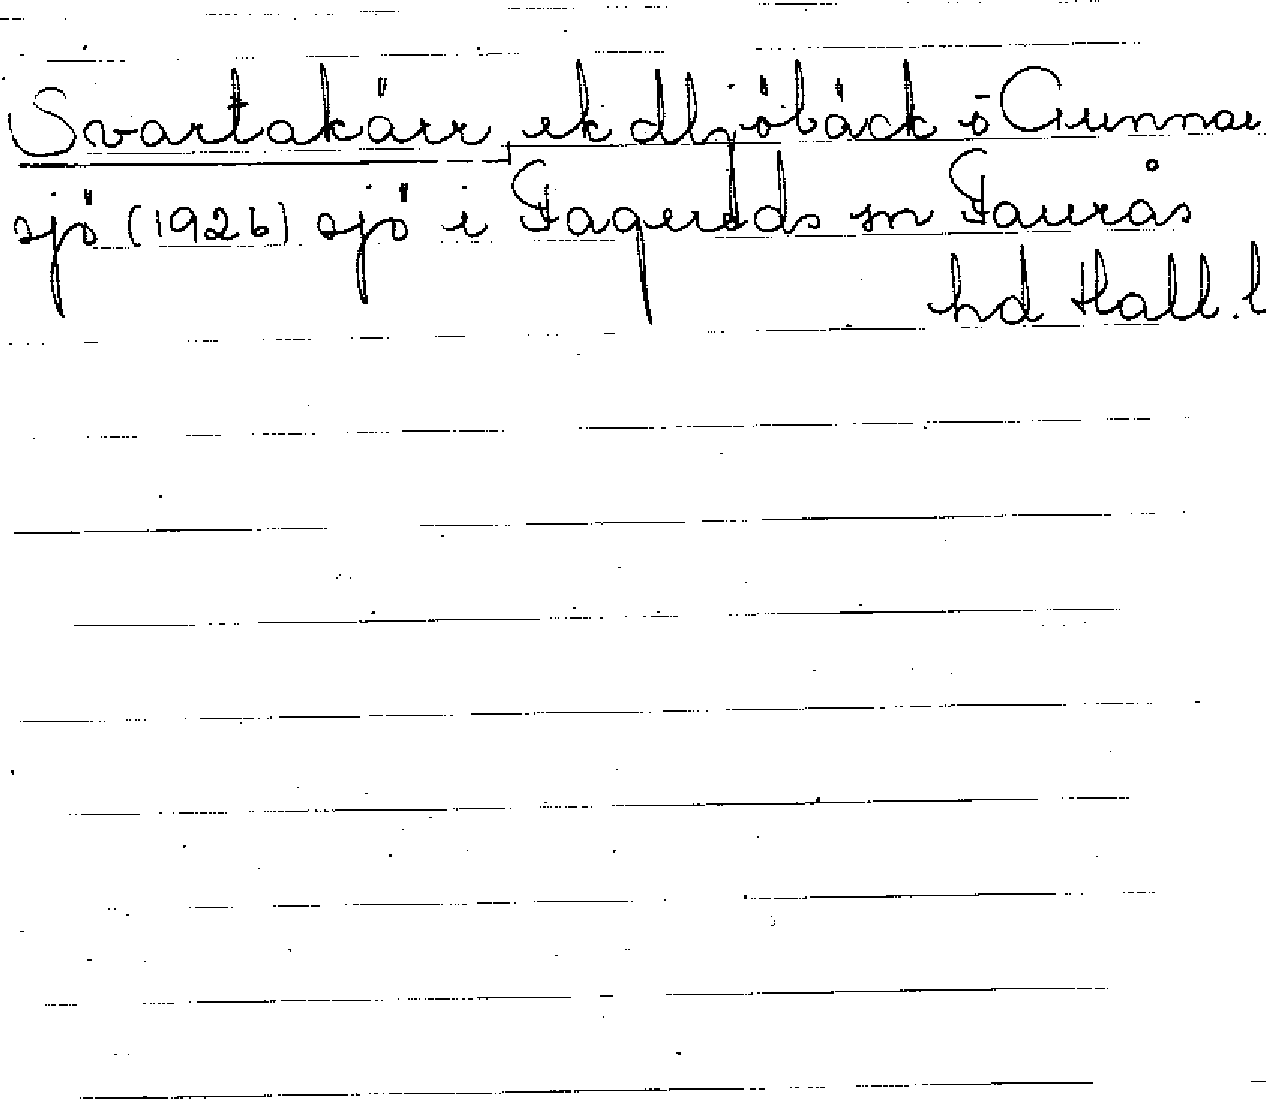 Svartakärr, ek dl, jöbäck ö Gunnar
sjö (1926) sjö i Fagereds sn Faurås
hd Hall. l